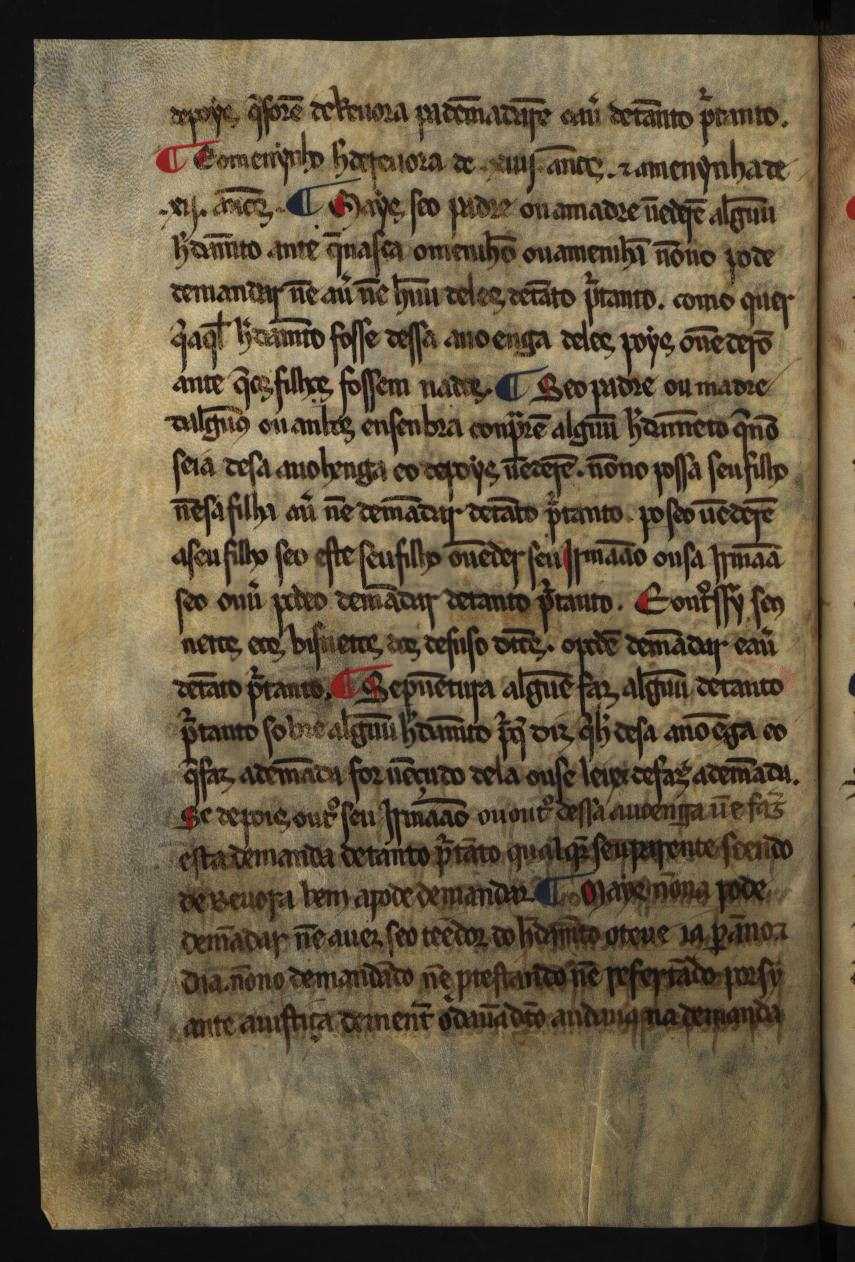 depoys q̄ forē de Reuora pa demādarē e auer̄ de tāto p̄ tanto.
¶ E o menỹho h̄ de reuora de .xiiii. ānos. ⁊ a menỹnha de
.xij. anos. ¶ Mays seo padre ou a madre uēderē algūu
h̄damēto ante q̄ nasca o meniho ou a meniha nōno pode
demandar nē au̓ nē hūu deles de tāto p̄ tanto. como quer
q̄ aq̄l h̄damēto fosse dessa auoenga deles poys o uēderō
ante q̄ os filhos fossem nados. ¶ Seo padre ou madre
dalgūus ou anbos ensenbra conprarē algūu h̄damēto q̄ nō
seia de sa auohenga eo depoys uēderē. nōno possa seu filho
nē sa filha au̓ nē demādar de tāto p̄ tanto. po seo uēderē
a seu filho seo este seu filho o uēder seu Irmāāo ou sa Irmāā
seo ouu̓ podeo demādar de tanto p̄ tanto. E outssy seus
netos e os bisnetos dos de suso ditos. o podē demādar e au̓
de tāto p̄ tanto. ¶ Se p uētura alguē faz algūu de tanto
p̄ tanto sobre algūu h̄damēto p̄ q̄ diz q̄ h̄ de sa auoēga eo
q̄ faz a demāda for uēcudo dela ou se leixa de faz̄ a demāda.
Se depois out seu Irmāāo ou out dessa auoenga uē faz̄
esta demanda de tanto p̄ tāto qualq̄r seu parente seendo
de Reuora bem a pode demandar. ¶ Mays nōna pode
demādar nē auer seo teedor do h̄damēto o teue ia p āno ⁊
dia. nōno demandādo nē prestando nē refertādo por sy
ante a iustiça dement o dauādito andaua na demanda